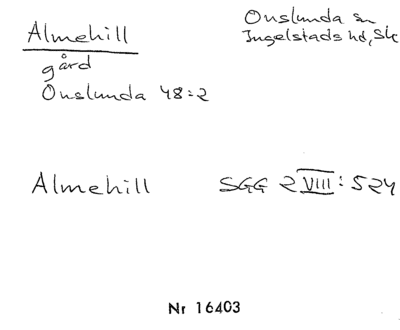 Almehill
gård
Onslunda 48:2
Onslunda sn
Ingelstads hd, Sk
Almehill SGG 2 VIII: 524
Nr 16403